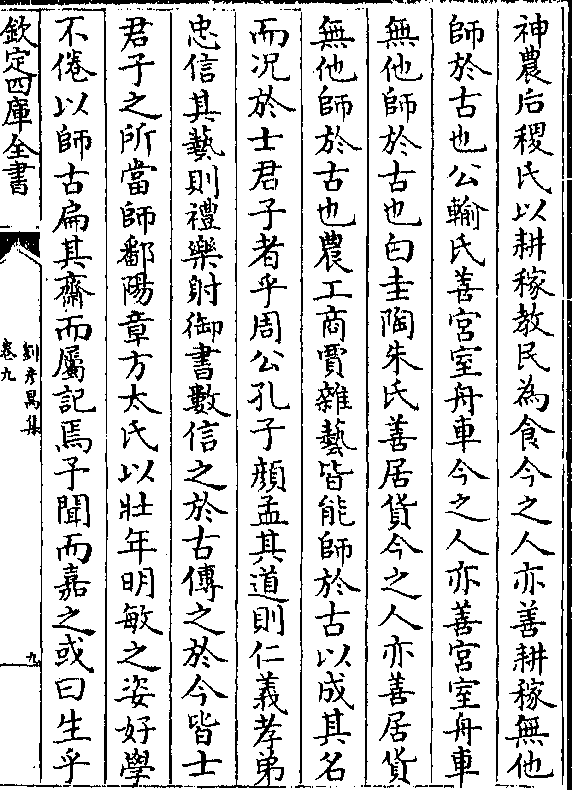 神農后稷氏以耕稼教民為食今之人亦善耕稼無他
師於古也公輸氏善宮室舟車今之人亦善宮室舟車
無他師於古也白圭陶朱氏善居貨今之人亦善居貨
無他師於古也農工商賈雜藝皆能師於古以成其名
而况於士君子者乎周公孔子顔孟其道則仁義孝弟
忠信其藝則禮樂射御書數信之於古傳之於今皆士
君子之所當師鄱陽章方太氏以壯年明敏之姿好學
不倦以師古扁其齋而屬記焉予聞而嘉之或曰生乎
欽定四庫全書
劉彥昺集
卷九
九